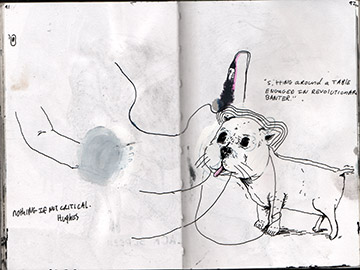 "Sitting around a TABLE
ENGAGED IN REVOLUTIONARY
BANTER."
NOTHING IF NOT CRITICAL.
Hughes